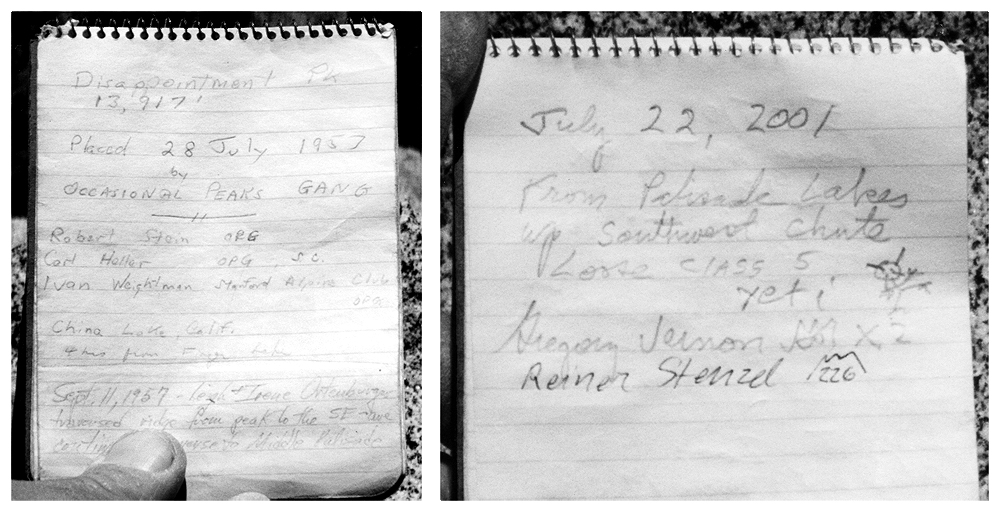 Disappointment Pk
13,917'
Placed 28 July 1957
by
OCCASIONAL PEAKS GANG
Robert Stein OPG
Carl Heller OPG S.C.
Ivan Weightman Stanford Alpine Club
OPG
China Lake, Calif.
4 hrs from Finger Lake
Sept. 11, 1957 - Leigh + Irene Ortenburger
traversed ridge from peak to the SE - are
to Middle Palisade
July 22, 2001
From Palisade Lakes
up Southwest Chute
Loose CLASS 5
yeti
Gregory Vernon X2
Reiner Stenzel 226